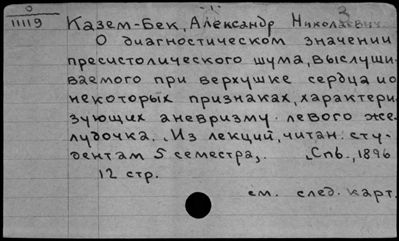 0
11119
Казем-Бек, Александр Николаевич
2
О диагностическом значении
пресистолического шума, выслуши-
ваемого при верхушке сердца и о
некоторых признаках, характери-
зующих аневризму левого же-
лудочка. Из лекций, читан. сту-
дентам 5 семестра,. Спб., 1896
12 стр.
см. след. карт.